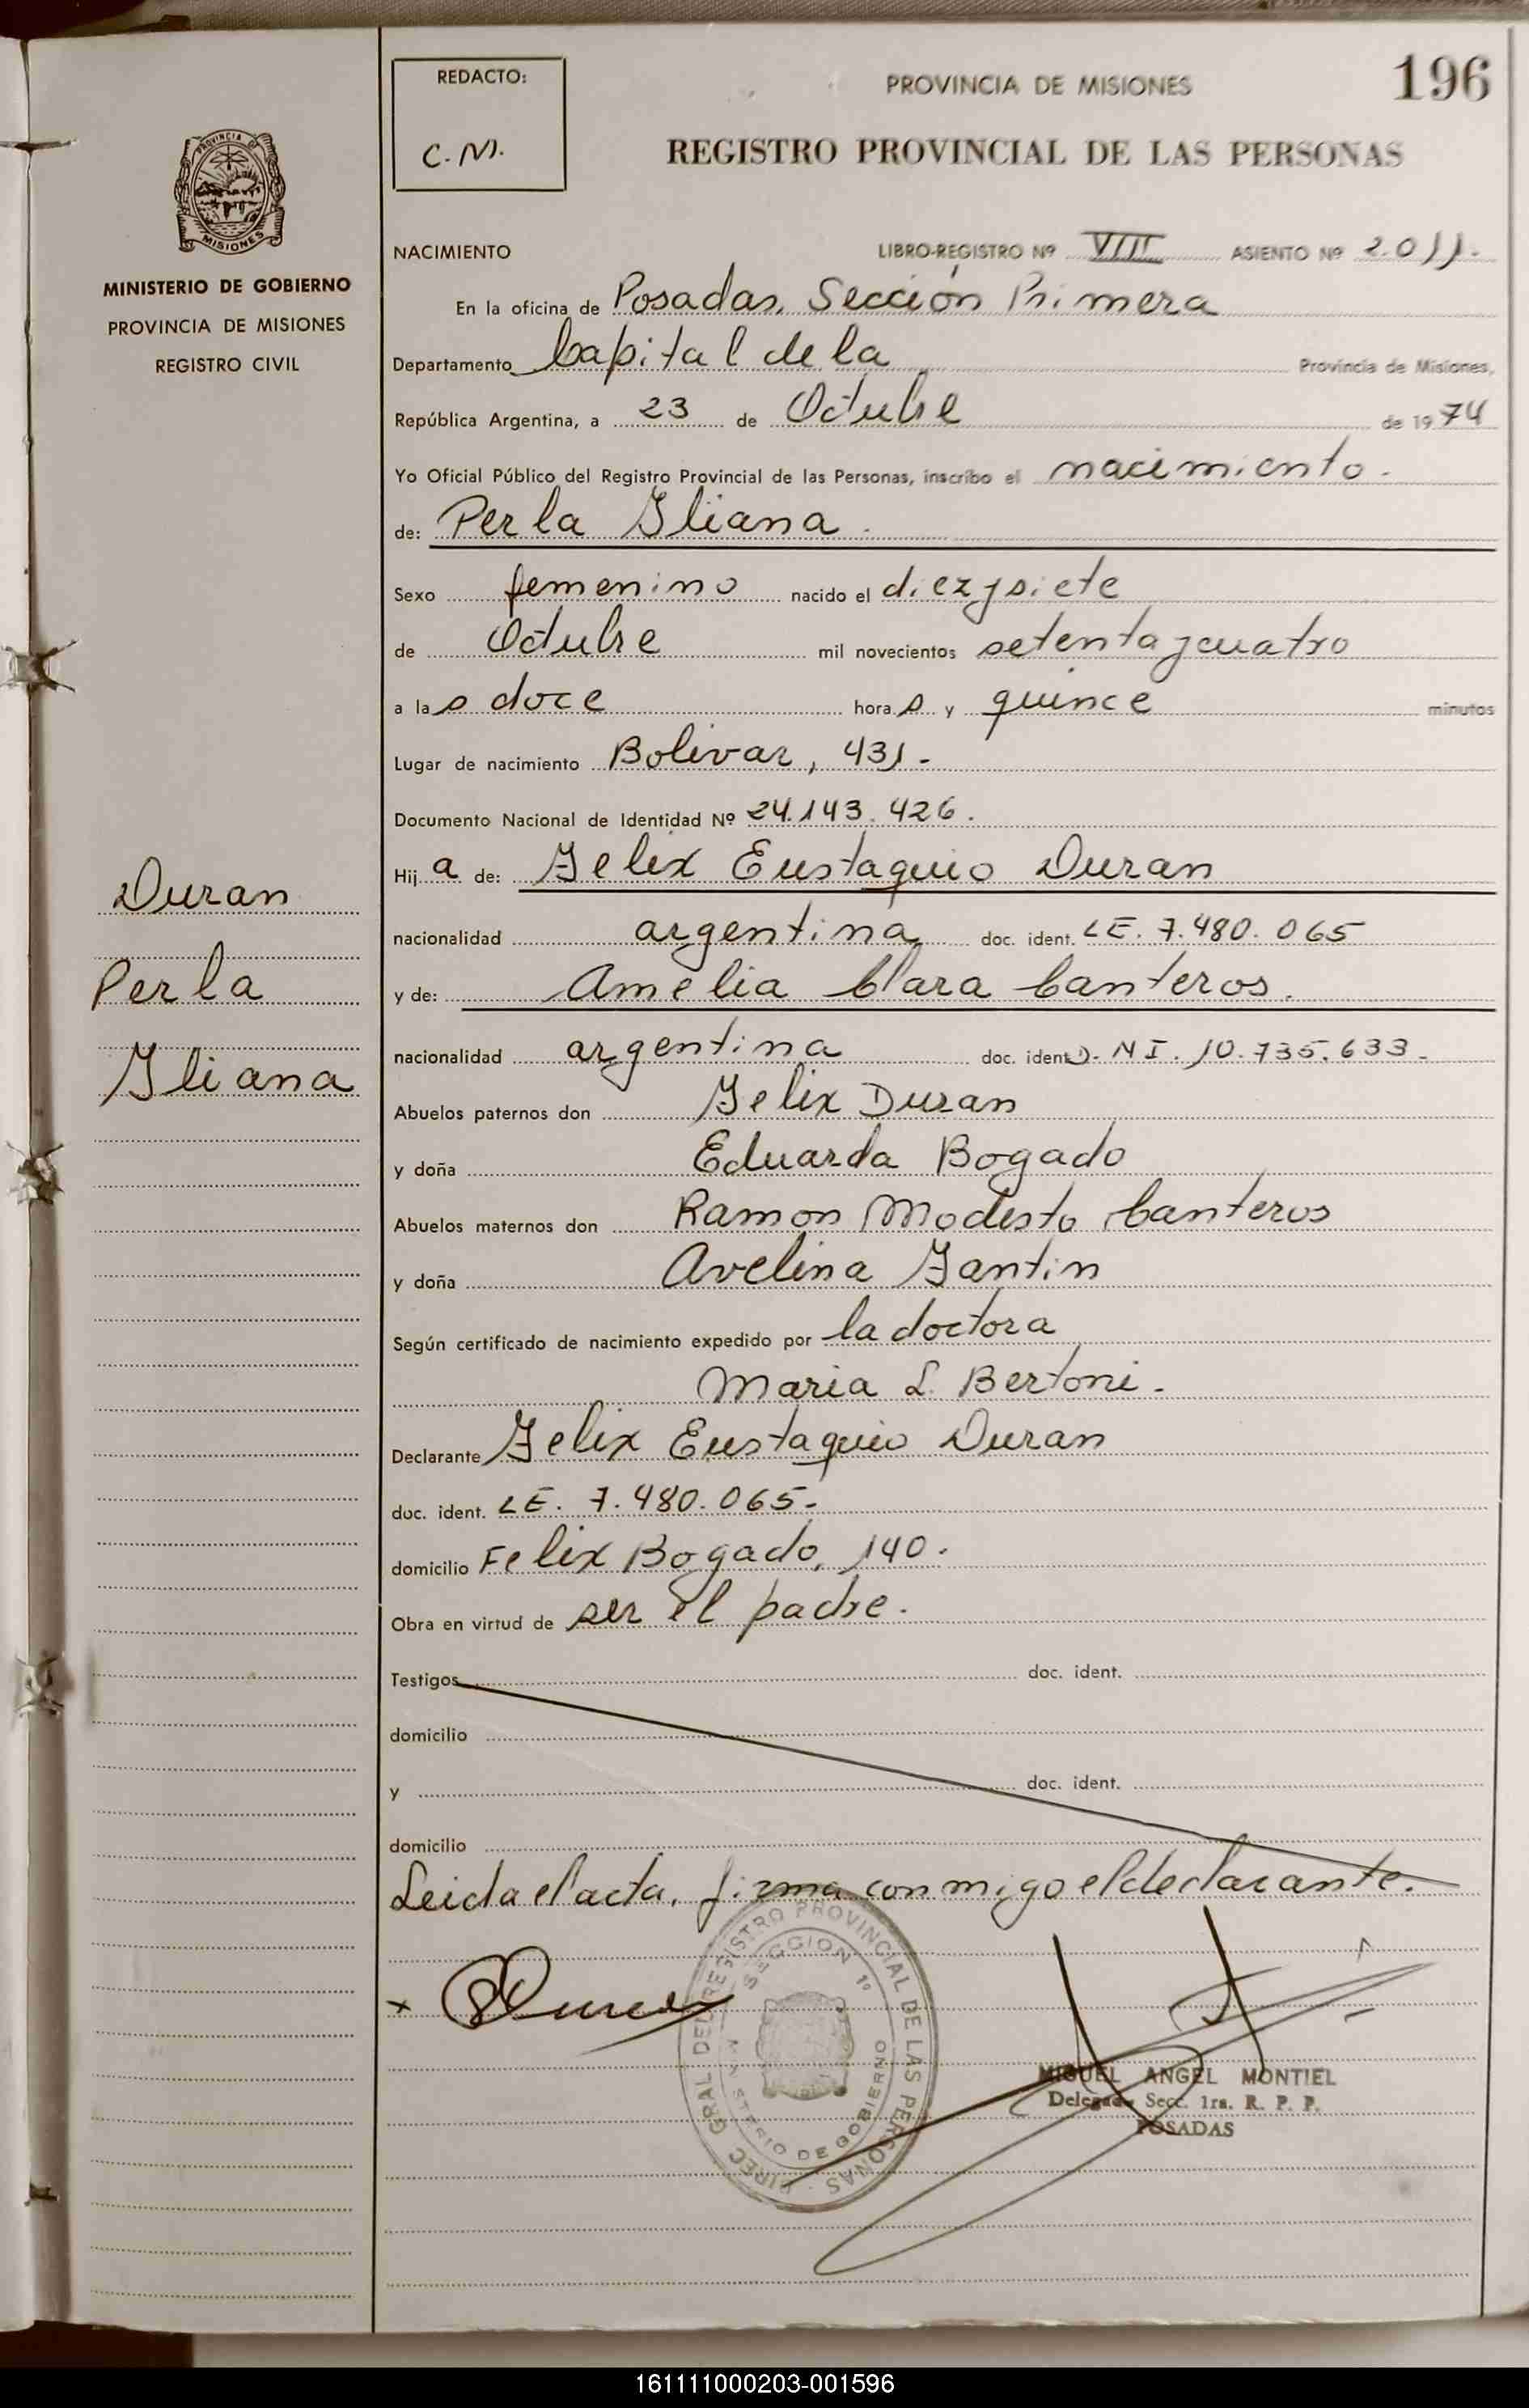 REDACTO:
C. M.
PROVINCIA DE MISIONES
196
REGISTRO PROVINCIAL DE LAS PERSONAS
PROVINCIA DE
MISIONES
MINISTERIO DE GOBIERNO
PROVINCIA DE MISIONES
REGISTRO CIVIL
NACIMIENTO LIBRO-REGISTRO Nº VIII ASIENTO Nº 2.011.
En la oficina de Posadas, Sección Primera
Departamento Capital de la Provincia de Misiones,
República Argentina, a 23 de Octubre de 1974
Yo Oficial Público del Registro Provincial de las Personas, inscribo el nacimiento.
de: Perla Iliana.
Sexo femenino nacido el diez y siete
de Octubre mil novecientos setenta y cuatro
a las doce horas y quince minutos
Lugar de nacimiento Bolivar, 431.-
Documento Nacional de Identidad Nº 24.143.426.
Hija de: Felix Eustaquio Duran
nacionalidad argentina doc. ident. LE. 7.480.065
y de: Amelia Clara Canteros.
nacionalidad argentina doc. ident D.NI. 10.735.633.-
Abuelos paternos don Felix Duran
y doña Eduarda Bogado
Abuelos maternos don Ramon Modesto Canteros
y doña Avelina Fantin
Según certificado de nacimiento expedido por la doctora
Maria L. Bertoni.-
Declarante Felix Eustaquio Duran
doc. ident. LE. 7.480.065.-
domicilio Felix Bogado, 140.
Obra en virtud de ser el padre.
Testigos doc. ident.
domicilio
y doc. ident.
domicilio
Leida el acta, firma conmigo el declarante.
Duran
Perla
Iliana
x
DIREC GRAL DEL REGISTRO PROVINCIAL DE LAS PERSONAS
SECCION 1º
MINISTERIO DE GOBIERNO
MIGUEL ANGEL MONTIEL
Delegado Secc. 1ra. R. P. P.
POSADAS
161111000203-001596